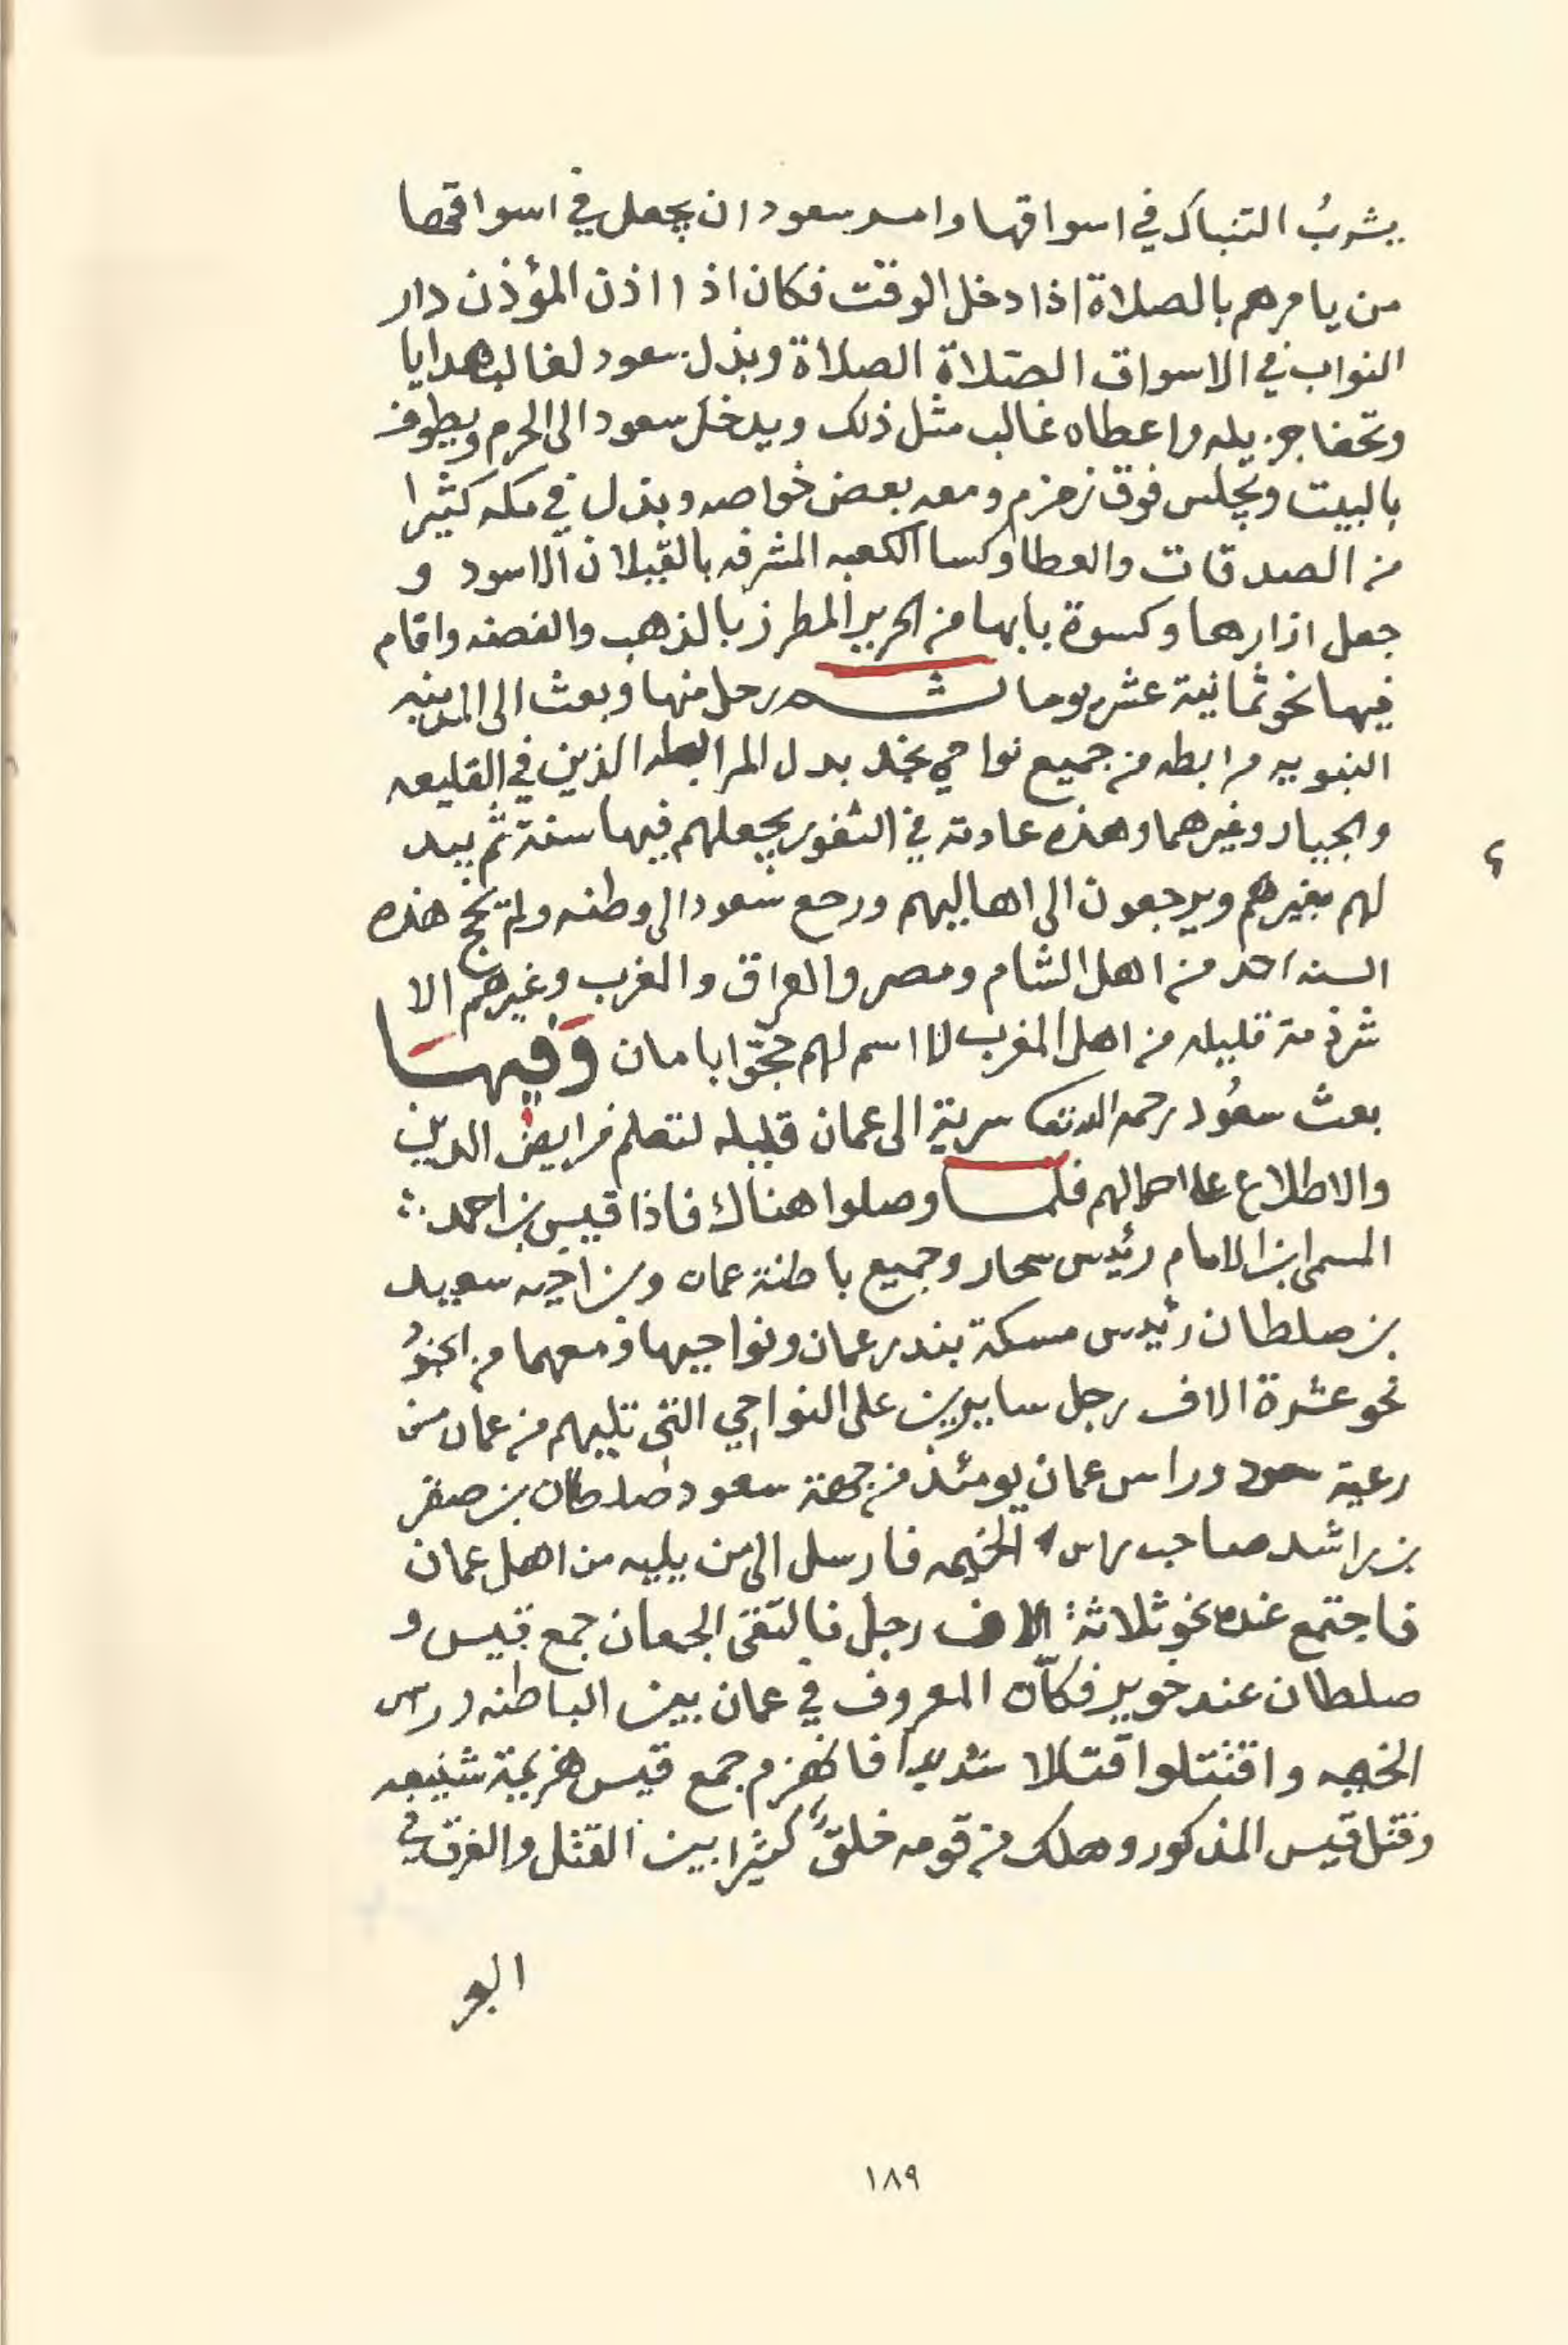 يشربُ التنباك في اسواقها وامر سعود ان يجعل في اسواقها
من يامرهم بالصلاة اذا دخل الوقت فكان اذا اذن المؤذن دار
النواب في الاسواق الصلاة الصلاة وبذل سعود لغالب هدايا
وتحفا جزيله واعطاه غالب مثل ذلك ويدخل سعود الى الحرم ويطوف
بالبيت ويجلس فوق زمزم ومعه بعض خواصه وبذل في مكه كثيرا
من الصدقات والعطا وكسا الكعبه المشرفه بالقيلان الاسود و
جعل ازارها وكسوة بابها من الحرير المطرز بالذهب والفضه واقام
فيها نحو ثمانية عشر يوما ثم رحل منها وبعث الى المدينه
النبويه مرابطه من جميع نواحي نجد بدل المرابطه الذين في القليعه
والجياد وغيرهما وهذه عادته في الثغور يجعلهم فيها سنة ثم يبد
لهم بغيرهم ويرجعون الى اهاليهم ورجع سعود الى وطنه ولم يحج هذه
السنه احد من اهل الشام ومصر والعراق والمغرب وغيرهم الا
شرذمة قليله من اهل المغرب لا اسم لهم حجّوا بامان وَفيهَا
بعث سعُود رحمه الله تعا سرية الى عمان قليله لتعلم فرايض الدين
والاطلاع على احوالهم فلما وصلوا هناك فاذا قيس بن احمد
المسمى ابن الامام رئيس سحار وجميع باطنة عمان وبن اخيه سعيد
بن صلطان رئيس مسكة بندر عمان ونواحيها ومعهما من الجنو
نحو عشرة الاف رجل سايرين على النواحي التي تليهم من عمان من
رعية سعود وراس عمان يومئذ من جهة سعود صلطان بن صقر
بن راشد صاحب راس الخيمه فارسل الى من يليه من اهل عمان
فاجتمع عنده نحو ثلاثة الاف رجل فالتقى الجمعان جمع قيس و
صلطان عند خوير فكان المعروف في عمان بين الباطنه وراس
الخيمه واقتتلوا قتالا شديدا فانهزم جمع قيس هزيمة شنيعه
وقتل قيس المذكور وهلك من قومه خلق كثيرا بين القتل والغرق في
البو
١٨٩